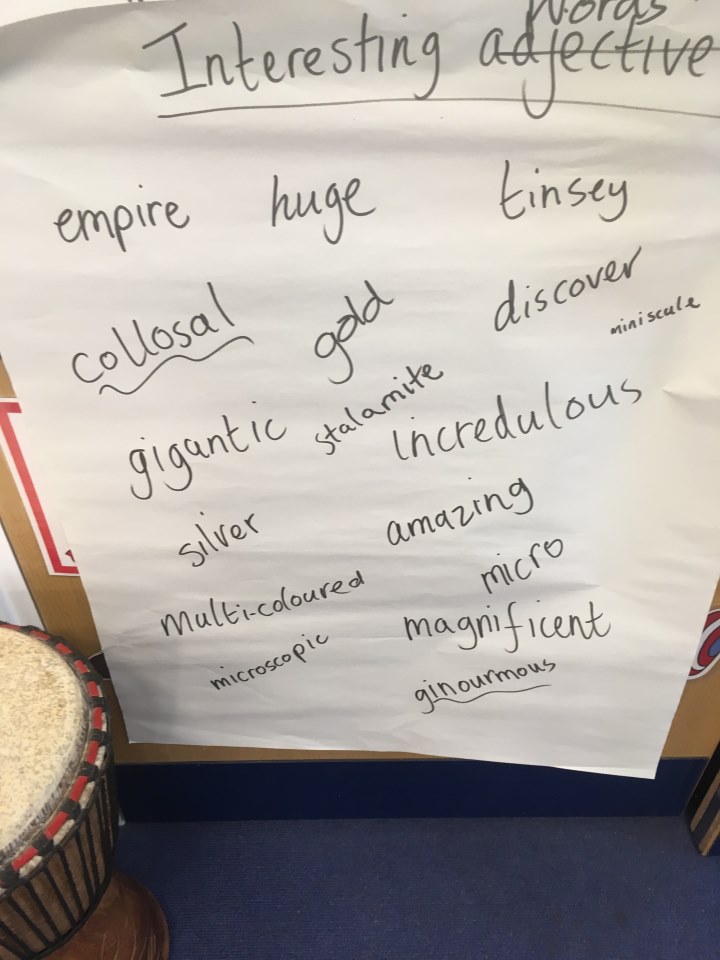 Interesting adjective Words
empire huge tinsey
collosal gold discover
miniscule
gigantic stalamite incredulous
silver amazing
multi-coloured micro
microscopic magnificent
ginourmous